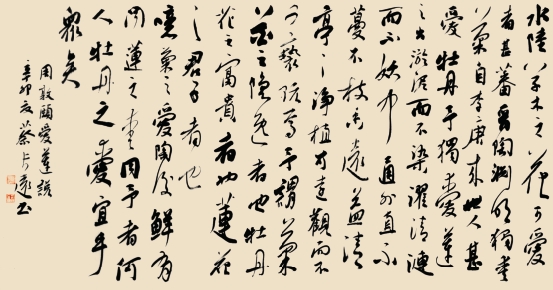 水陸草木之花可愛
者甚蕃晉陶淵明獨愛
菊自李唐來世人甚
愛牡丹予獨愛蓮
之出淤泥而不染濯清漣
而不妖中通外直不
蔓不枝香遠益清
亭亭淨植可遠觀而不
可褻玩焉予謂菊
花之隱逸者也牡丹
花之富貴者也蓮花
之君子者也
噫菊之愛陶後鮮有
聞蓮之愛同予者何
人牡丹之愛宜乎
眾矣
周敦頤愛蓮說
辛卯夏蔡遠書